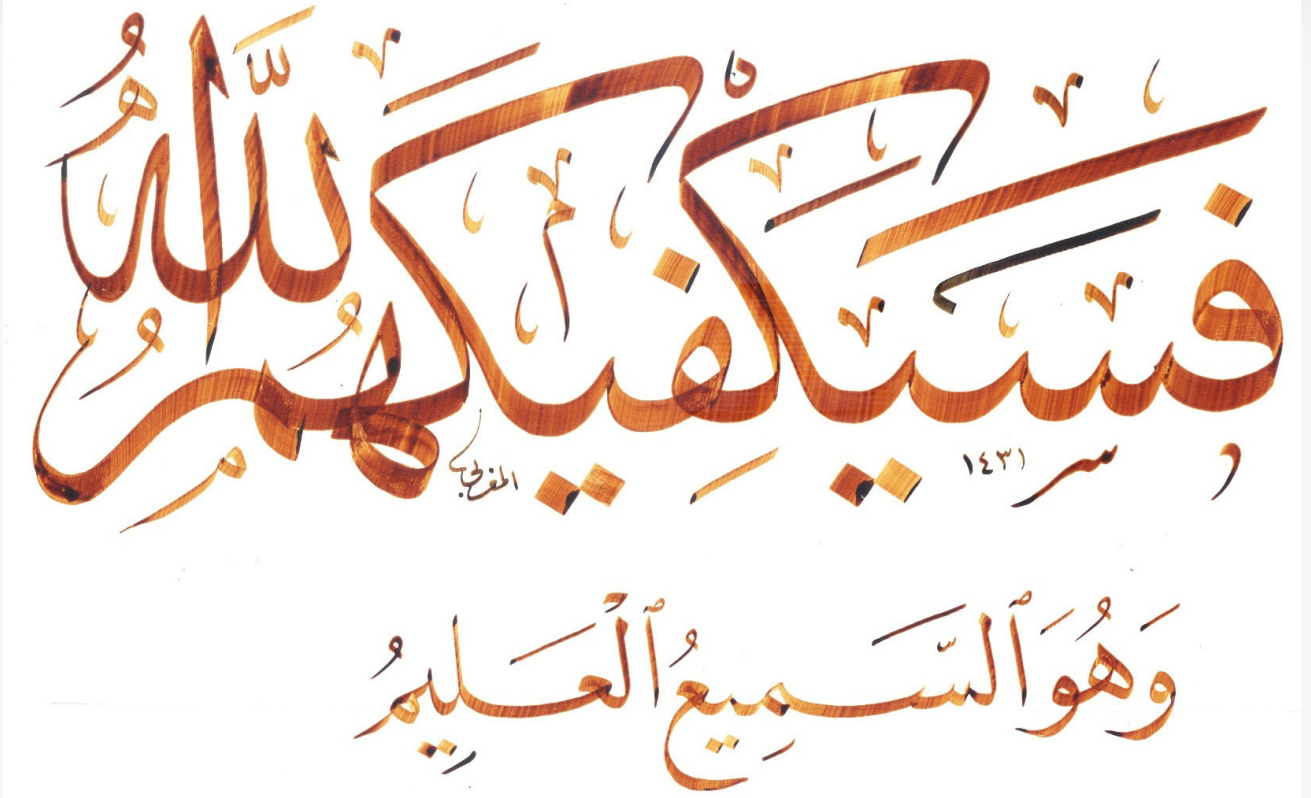 فَسَيَكْفِيكَهُمُ اللَّهُ
١٤٣١
وَهُوَ ٱلسَّمِيعُ ٱلْعَلِيمُ